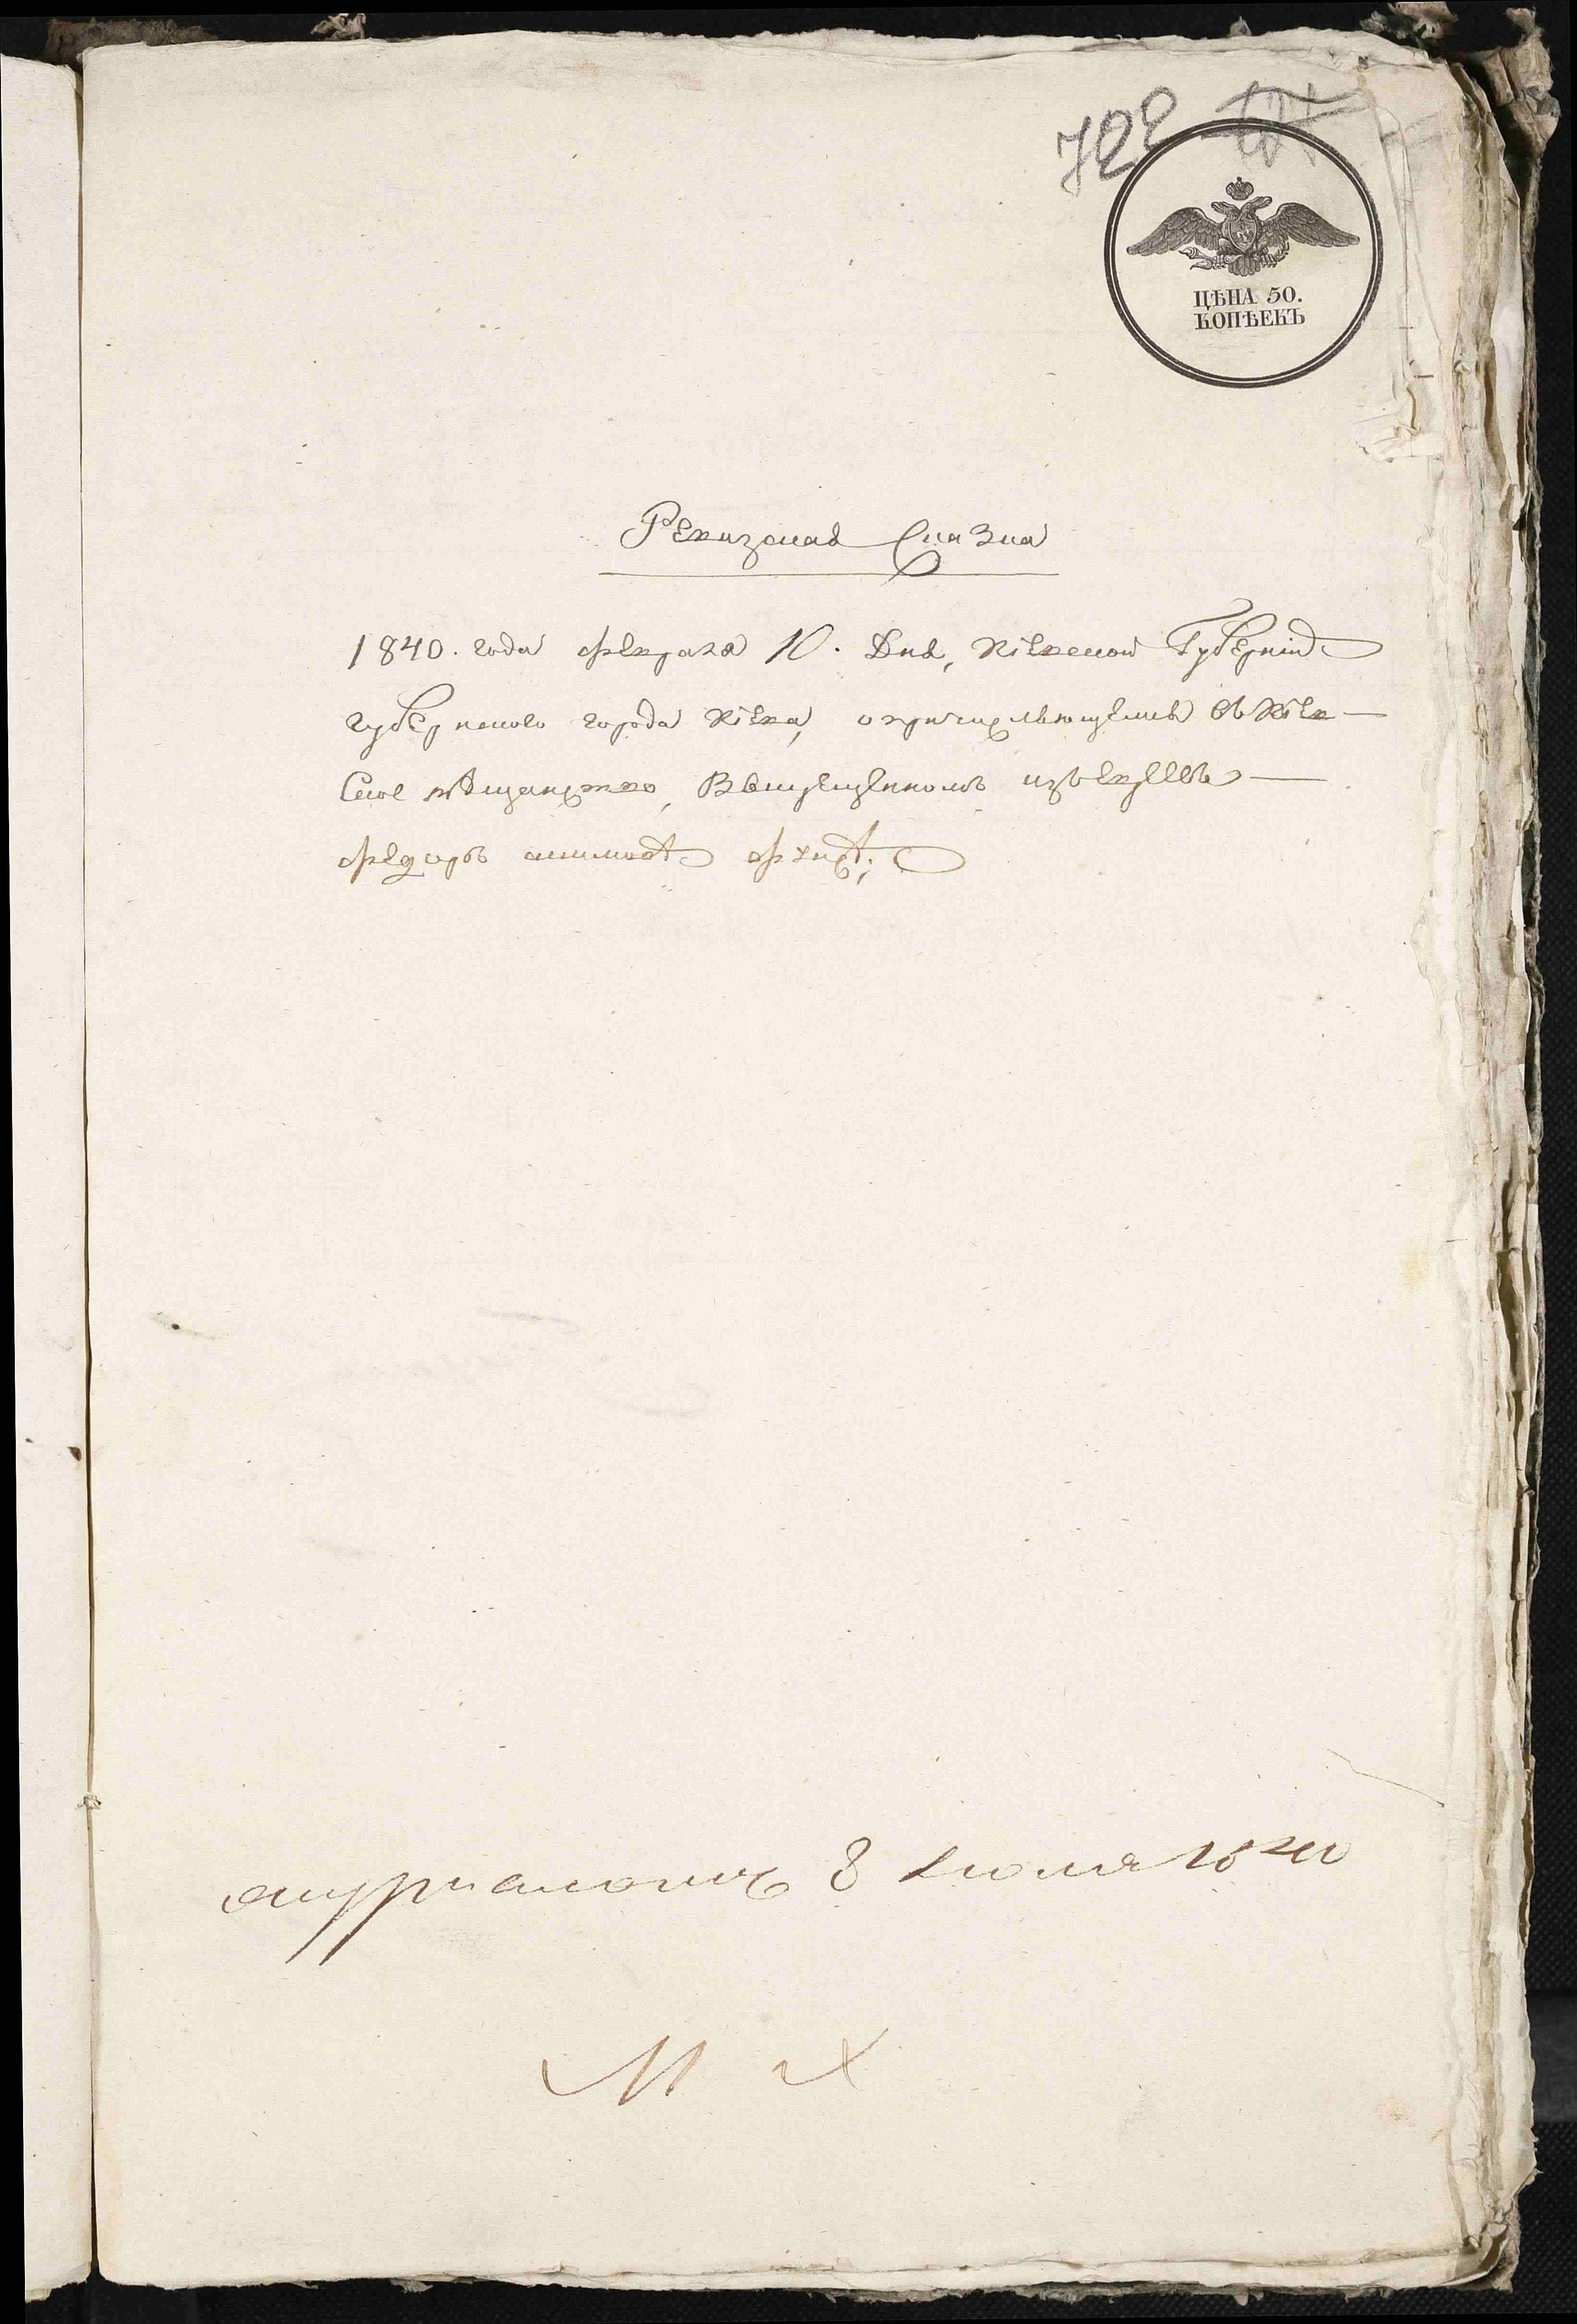 722
ЦѢНА 50.
КОПѢЕКЪ
Ревизская Сказка
1840. года февраля 10. Дня, Кіевской Губерніи
губернскаго города Кіева, о причисляющемся въ Кіев-
ское мѣщанство, Выкрещенномъ изъ евреевъ
8 Іюля 1840